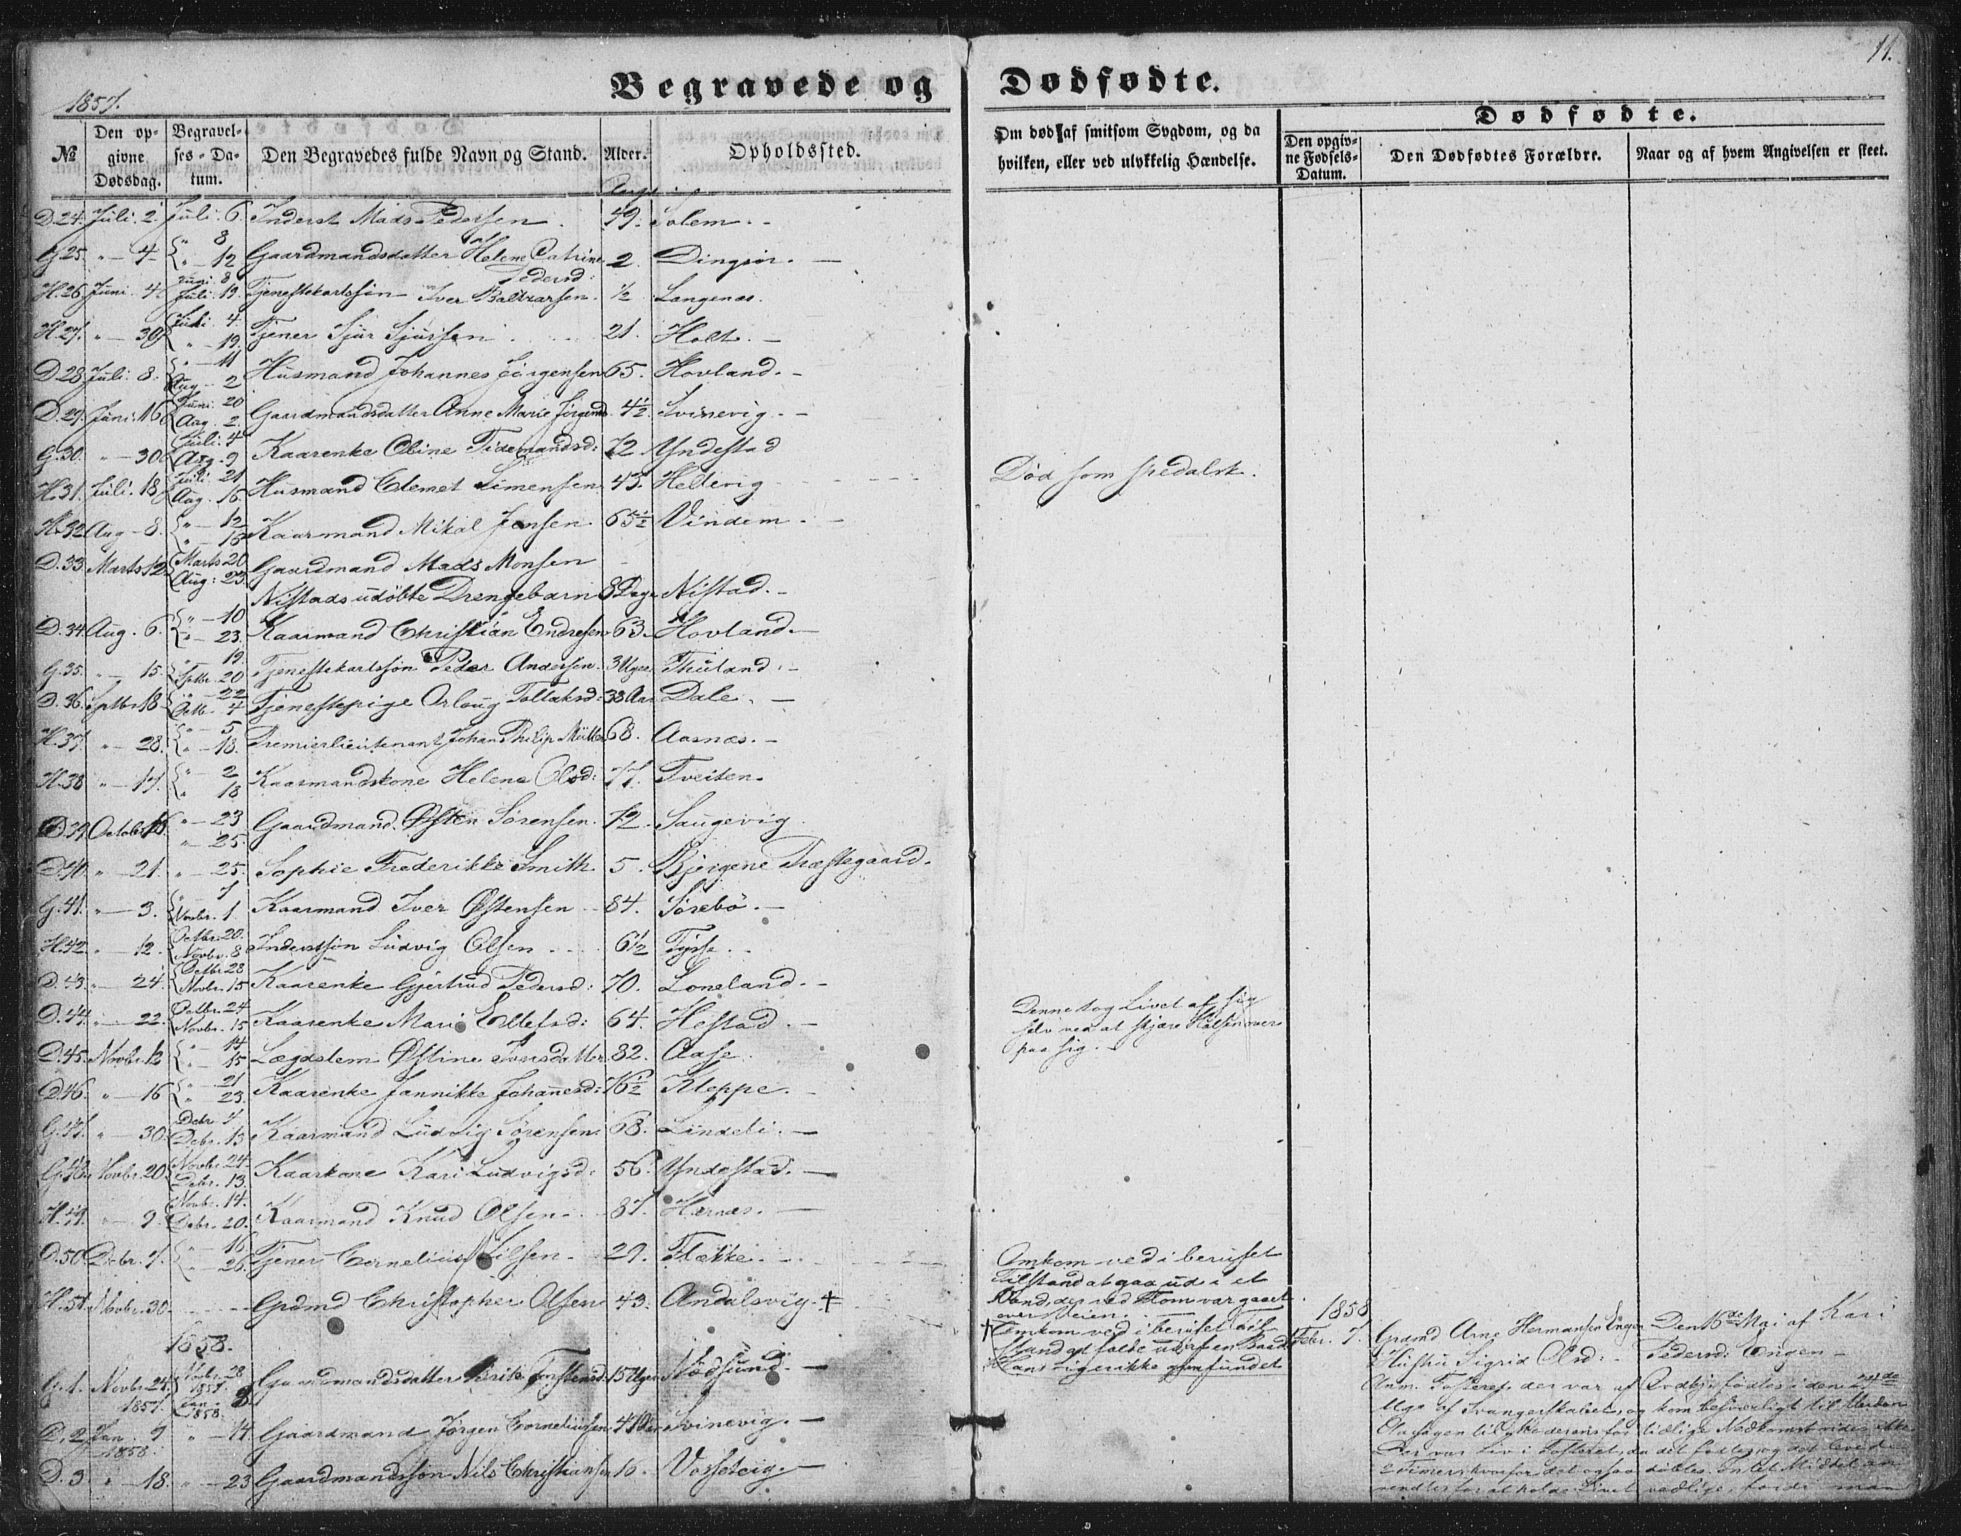 11.
Begravede og Dødfødte.
1857.
Dødfødte.
№ Den opgivne Dødsdag. Begravelses-Datum. Den Begravedes fulde Navn og Stand. Alder. Opholdssted. Om død af smitsom Sygdom, og da hvilken, eller ved ulykkelig Hændelse. Den opgivne Fødsels-Datum. Den Dødfødtes Forældre. Naar og af hvem Angivelsen er skeet.
D.24. Juli. 2. Juli. 6. Inderst Mads Pedersen 49. Solem.
G.25. " 4. " 8 " 12 Gaardmandsdatter Helene Catrine Pedersd: 2. Dingsør.
H.26. Juni. 4. Juni. 8. Juli. 19. Tjenestekarlssøn Iver Baltzarsen. ½ Langenæs.
H.27. " 30. Juli. 4. " 19. Tjener Sjur Sjursen 21. Holt.
D.28. Juli. 8. " 11 Aug. 2 Husmand Johannes Jørgensen 65. Hovland.
D.29. Juni. 16 Juni. 20 Aug. 2. Gaardmandsdatter Anne Marie Jørgensd. 4½. Svinevig.
G.30. " 30. Juli. 4 Aug. 9 Kaarenke Oline Tidemandsd: 72 Yndestad
H.31. Juli. 18. Juli. 21 Aug. 16. Husmand Clemet Simensen 43. Hellevig Død som spedalsk.
H.32 Aug. 8. " 12 " 16 Kaarmand Mikal Jensen. 65½ Vindem.
D.33. Marts 12. Marts 20 Aug: 23. Gaardmand Mads Monsen
Nistads udøbte Drengebarn 8 Dage Nistad.
D.34. Aug. 6. " 10 " 23. Kaarmand Christian Endresen 63. Hovland.
G.35. " 15. " 19. Sptbr. 20 Tjenestekarlssøn Peder Andersen. 3 Uger. Thuland.
D.36. Septbr 18. " 22 Octb. 4 Tjenestepige Orloug Tollaksd: 38 Aar Dale.
H.37. " 28. " 5 " 18. Premierlieutenant Johan Philip Müller 68. Aasnæs.
H.38 " 17. " 2 " 18 Kaarmandskone Helene Olsd: 77. Tveiten.
D.39. October 18. " 23 " 25. Gaardmand Østen Sørensen. 72. Saugevig.
D.40. " 21. " 25. Sophie Frederikke Smith 5. Bjergene Præstegaard.
G.41. " 3. " 7 Novbr. 1. Kaarmand Iver Østensen 84. Sørebø.
H.42 " 12. Octbr. 20. Novbr. 8 Inderstsøn Ludvig Olsen 6½ Tysse.
D.43. " 24. Octbr. 28 Novbr. 15 Kaarenke Gjertrud Pedersd: 70. Loneland.
D.44. " 22. Octbr. 24 Novbr. 15 Kaarenke Mari Ellefsd: 64. Hestad. Denne tog Livet af sig
selv ved at skjære Halsen over
paa sig.
D.45. Novbr. 12 " 14 " 15 Lægdslem Østine Iversdatter 82. Aase.
D.46. " 16 " 21 " 23. Kaarenke Jannikke Johannesd: 76½ Kleppe.
G.47. " 30. Debr. 7 Debr. 13 Kaarmand Ludvig Sørensen. 68. Lindeli.
G.48. Novbr. 20. Novbr. 24. Debr. 13. Kaarkone Kari Ludvigsd: 56. Yndestad.
H.49. " 9. Novbr. 14. Debr. 20. Kaarmand Knud Olsen 87. Hærnæs.
D.50. Debr. 7. " 16 " 26. Tjener Cornelius Nilsen 29. Flække. Omkom ved i beruset
Tilstand at gaa ud i et
Vand, der ved Flom var gaaet
over Veien.
H.51. Novbr. 30. Grdmd Christopher Olsen 43. Andalsvig. †
† Omkom ved i beruset Til-
stand at falde ud af en Baad.
Hans Lig er ikke gjenfundet
1858.
G.1. Novbr. 24. 1857. Novbr. 28 1857. Jan. 8 1858. Gaardmandsdatter Brite Torstensd: 15 Uger Nødsund.
D.2. Jan. 9 1858. " 14 Gaardmand Jørgen Corneliussen 41 Aar Svinevig.
D.3 " 18. " 23 Gaardmandssøn Nils Christiansen 10. Vosselvig.
1858
Febr. 7. Grdmd Arne Hermansen Engen Den 16de Mai af Kari
Hustru Sigrid Olsd: Pedersd: Engen
Anm. Fosteret, der var af fødtes i den
Uge af Svangerskabet, og kom til Verden
tidlige Nedkomst vides ikke
Der var Liv i Fosteret, da det fødtes, og det levede
2 Timer, hvorfor det ogsaa døbtes. Intet Middel an-
vendtes for at holde Livet vedlige, fordi man